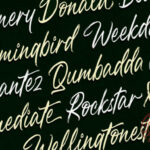 nery Donald
mingbird Weekd
antez Qumbadda
mediate Rockstar
Wellingtones